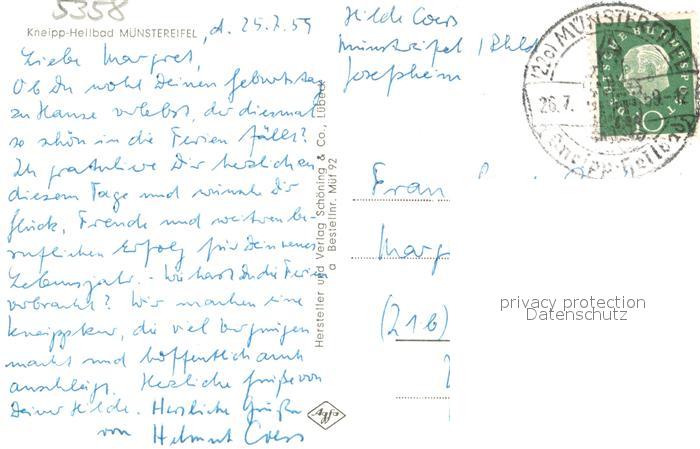 5358
Kneipp-Heilbad MÜNSTEREIFEL, d. 25.7.59
Liebe Margret,
Ob Du wohl Deinen Geburtstag
zu Hause verlebst, der diesmal
so schön in die Ferien fällt?
Ich gratuliere Dir herzlich an
diesem Tage und wünsche Dir
Glück, Freude und weiteren be-
ruflichen Erfolg für Dein neues
Lebensjahr. - Wie hast Du die Ferien
verbracht? Wir machen eine
Kneippkur, die viel Vergnügen
macht und hoffentlich auch
anschlägt. Herzliche Grüße von
Deiner Hilde. Herzliche Grüße
von Helmut Coers
Hersteller und Verlag Schöning & Co., Lübeck
a Bestellnr. Müf 92
Agfa
Hilde Coers
Münstereifel / Rhld
Josefheim
MÜNSTER
26.7.
59
Kneipp-Heilbad
DEUTSCHE BUNDESPOST
10
Frau
Marg
(21b)
privacy protection
Datenschutz